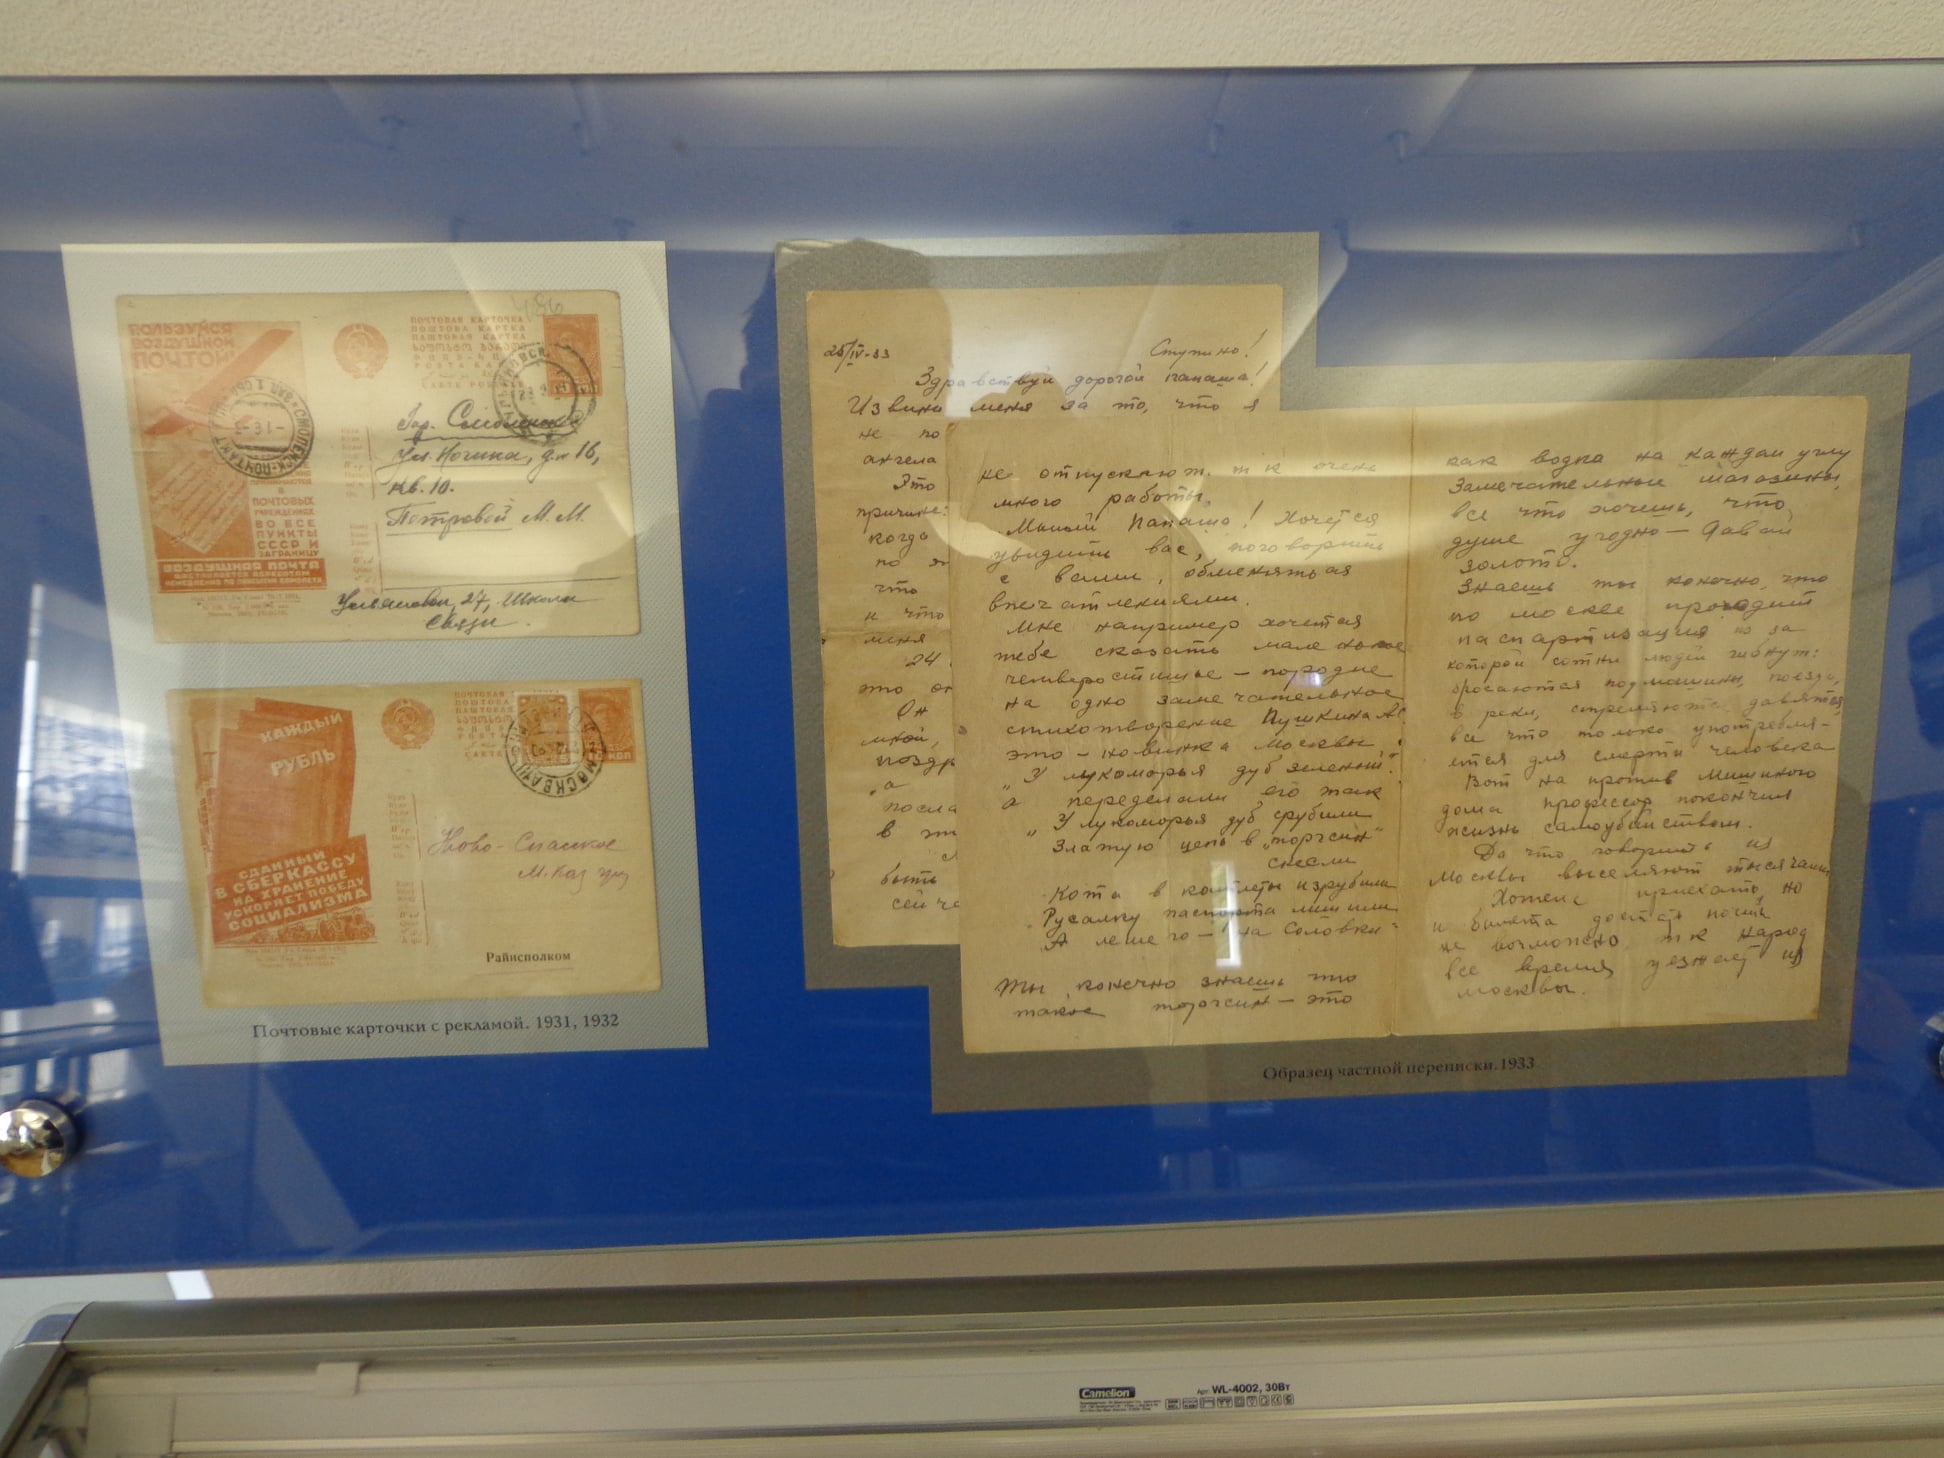 ПОЛЬЗУЙСЯ
ВОЗДУШНОЙ
ПОЧТОЙ
ПОЧТОВЫХ
УЧРЕЖДЕНИЯХ
ВО ВСЕ
ПУНКТЫ
СССР И
ЗАГРАНИЦУ
ВОЗДУШНАЯ ПОЧТА
ПОЧТОВАЯ КАРТОЧКА
ПОШТОВА КАРТКА
ПАШТОВАЯ КАРТКА
486
СМОЛЕНСК-ПОЧТАМТ
Гор. Смоленск
Ул. Ногина, д. 16,
кв. 10.
Петровой М. М.
Ульяновск, 27, Школа
Связи.
КАЖДЫЙ
РУБЛЬ
СДАННЫЙ
В СБЕРКАССУ
НА ХРАНЕНИЕ
УСКОРЯЕТ ПОБЕДУ
СОЦИАЛИЗМА
ПОЧТОВАЯ
ПОШТОВА
ПАШТОВАЯ
МОСКВА
КОП
Ново-Спасское
Райисполком
Почтовые карточки с рекламой. 1931, 1932
25/IV-33
Ступино!
Здравствуй дорогой папаша!
Извини меня за то, что я
не по
ангела
Это
причине:
когда
по
что
и что
меня
24
это
Он
мной,
поздр
а
посла
в
быть
сейча
не отпускают. т к очень
много работы.
Милый Папаша! Хочется
увидить вас, поговорить
с вами, обменяться
впечатлениями.
Мне например хочется
тебе сказать маленькое
четверостишье - породие
на одно замечательное
стихотворение Пушкина АС
это - новинка Москвы,
„У лукоморья дуб зеленый"
а переделали его так
„У лукоморья дуб срубили
Златую цепь в „торгсин"
снесли
Кота в котлеты изрубили
Русалку паспорта лишили
А лешего - на Соловки"
Ты конечно знаешь что
такое торгсин - это
как водка на каждом углу
Замечательные магазины,
все что хочешь, что
душе угодно - давай
золото.
Знаешь ты конечно, что
по москве проходит
паспартизация из за
которой сотни людей гибнут:
бросаются под машины, поезда,
в реки, стреляются давятся
все что только употребля-
ется для смерти человека
Вот на против Мишиного
дома профессор покончил
жизнь самоубийством.
Да что говорить из
Москвы выселяют тысячами
Хотела приехать, но
и билета достать почти
не возможно т к народ
все время уезжает из
москвы.
Образец частной переписки. 1933
Camelion
Арт. WL-4002, 30Вт